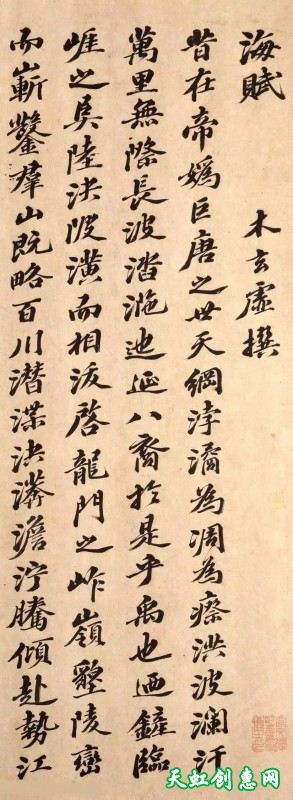 海賦
木玄虛撰
昔在帝媯巨唐之世天綱浡潏為凋為瘵洪波瀾汗
萬里無際長波涾沲迆涎八裔於是乎禹也迺鏟臨
崖之阜陸決陂潢而相沷啓龍門之岝嶺墾陵巒
而嶄鑿羣山既略百川潛渫決漭澹泞騰傾赴勢江
天虹创意网